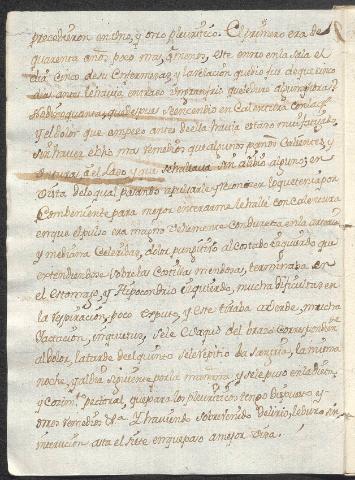 precedieron en Uno, y otro pleuritico. El primero era de
quarenta años poco mas, ò menos, este entro en la Sala el
dia cinco de su Enfermedad y la relacion que dio fue de que unos
dias antes le havia entrado
que despues se encendio en Calentura con la
y el dolor que empezo antes de ella havia estado mui fatigado
sin haver echo mas remedios que algunos paños Calientes y
Unturas à el Lado y que se hallava sin alibio alguno, en
Vista de lo qual pasando a pulsarle y reconocer lo que tenia por
Combeniente para mejor enterarme le hallè con Calentura
en que el pulso era magno Vehemente con dureza en la arteria
y mediana Celeridad, dolor pungitivo al Costado izquierdo que
extendiendose sobre las Costillas mendosas, terminaba en
el estomago, y Hipocondrio izquierdo, mucha dificultad en
la respiracion, poco esputo, y este tiraba a verde, mucha
inquietud, se le Evaquò del brazo Correspondiente
al dolor, la tarde del quinto se le repitio la Sangria, la misma
noche, y al dia siguiente por la mañana, y se le puso en la dieta
y Cozimto pectoral, que para los pleuriticos tengo dispuesto y
otros remedios Va. Y haviendo sobrevenido delirio, le duro sin
intermision asta el siete en que paso a mejor Vida.